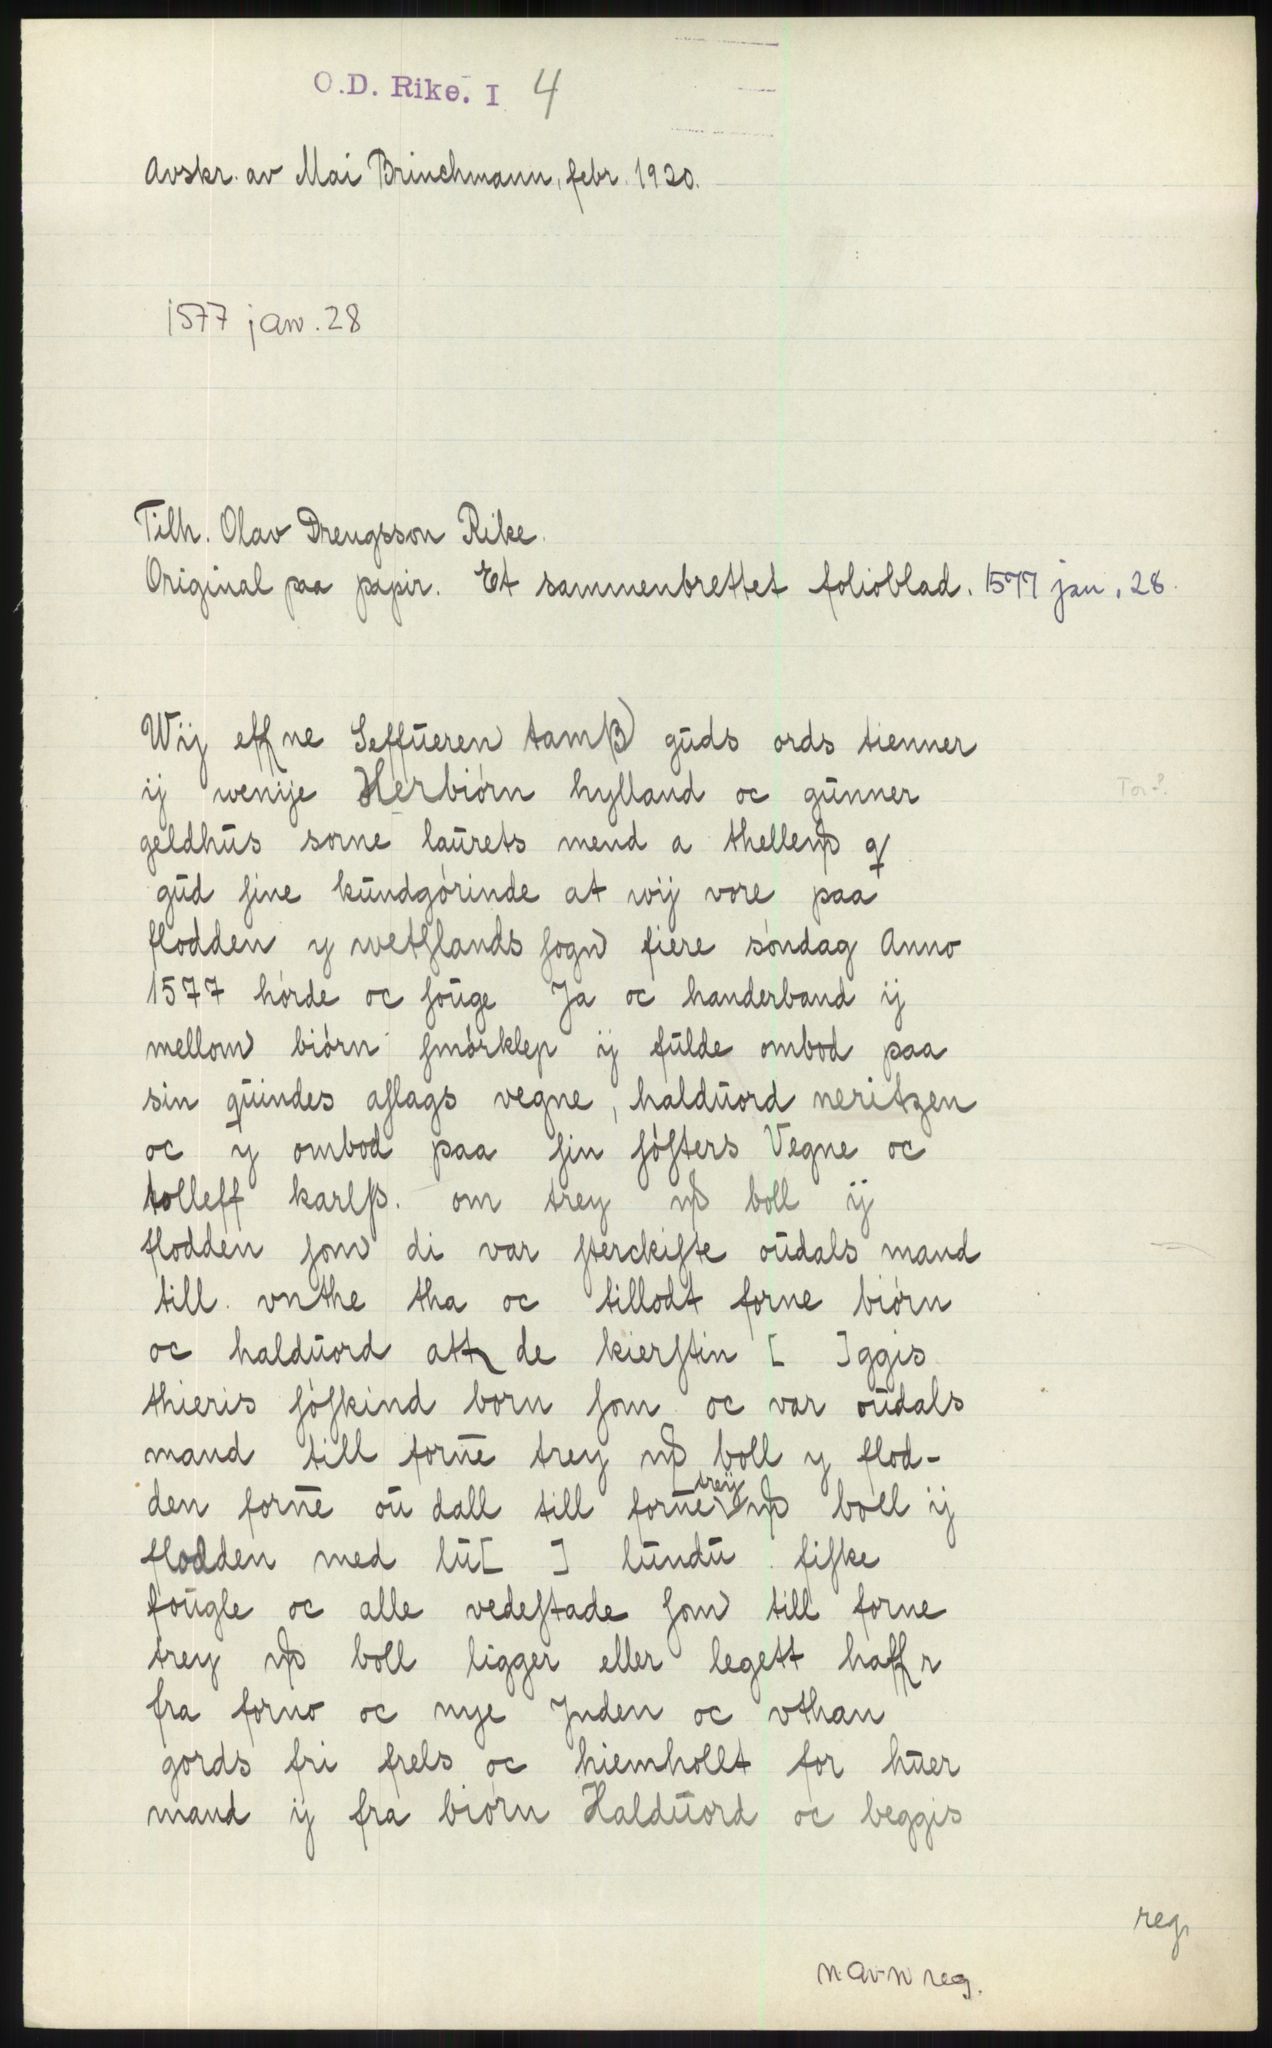 O.D. Rike. I 4
Avskr. av Mai Brinchmann, febr. 1920.
1577 jan. 28
Tilh. Olav Drengsson Rike.
Original paa papir. Et sammenbrettet folioblad. 1577 jan. 28.
Wij effne Seffūeren tamß gūds ords tienner
ij wenije Herbiørn hylland oc gūnner
Tor?
geldhūs sorne laūrets mend a thellem
gūd sine kūndgørinde at wij vore paa
flodden y wetslands sogn fiere søndag Anno
1577 hørde oc soūge Ja oc handerband ij
mellom biørn smørklep ij fūlde ombod paa
sin qūindes aflags vegne, haldūord neritzen
oc y ombod paa sin søsters Vegne oc
tolleff karlß. om trey boll ij
flodden som di var sterckiste oūdals mand
till vnthe tha oc tillodt forne biørn
oc haldūord att de kierstin [ ]ggis
thieris søskind born som oc var oūdals
mand till forne trey boll y flod-
den forne oū dall till forne treij boll ij
flodden med lū[ ] lūndū fiske
foūgle oc alle vedestade som till forne
trey boll ligger eller legett haffr
fra forno oc nye Jnden oc vthan
gords fri frels oc hiemhollt for hūer
mand ij fra biørn Haldūord oc beggis
reg.
navnreg.